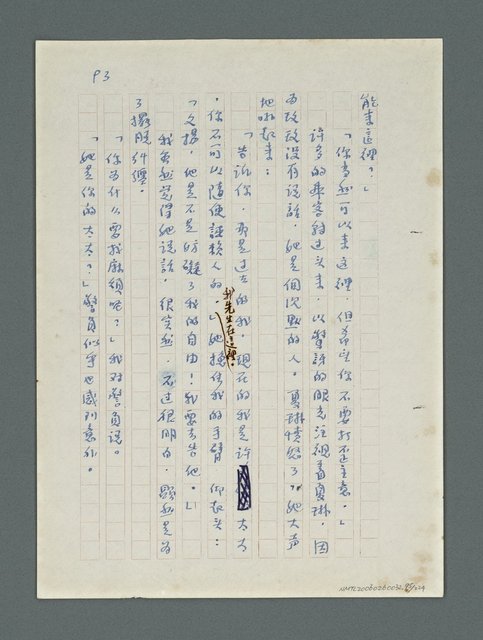 P3
能來這裡？」
「你當然可以來這裡，但希望你不要打歪主意。」
許多的乘客轉过头來，以驚訝的眼光注視着夏琳，因
為玫玫沒有說話，她是個沉默的人。夏琳憤怒了，她大声
地吼起來：
「告訴你，那是过去的我，現在的我是許 太太
，你不可以隨便誣賴人的。」她挽住我的手臂，仰起头：
我先生在這裡。
「文揚，他是不是妨礙了我的自由！我要去告他。」
我虽然覺得她說話，很突然，不过很明白，顯然是為
了擺脫糾纏。
「你為什么要找麻煩呢？」我对警員說。
「她是你的太太？」警員似乎也感到意外。
NMTL20060260032